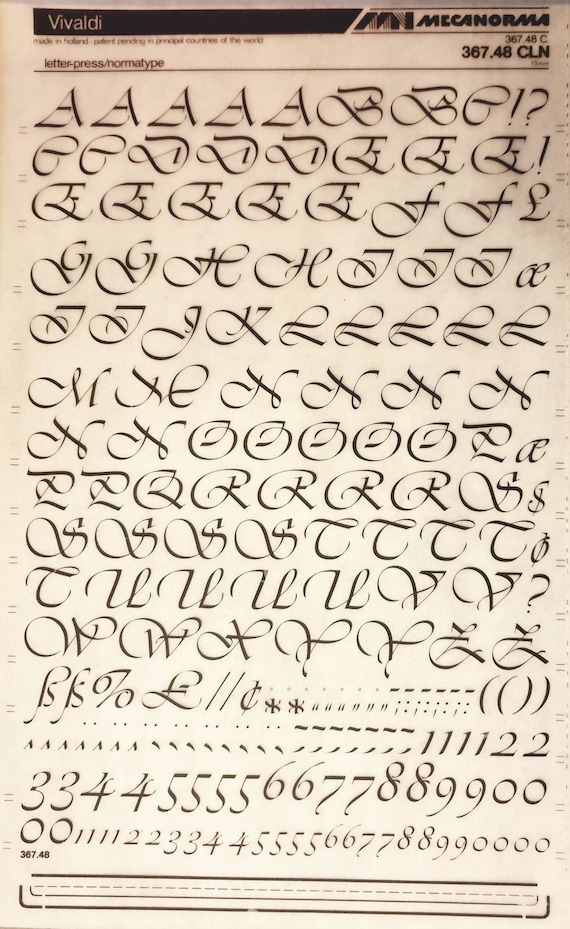 Vivaldi MECANORMA
made in holland · patent pending in principal countries of the world 367.48 C.
367.48 CLN
letter-press/normatype
A A A A A B B C ! ?
C C D D D E E E !
E E E E E F F £
G G H H I I I æ
I I J K L L L L L
M M N N N N
N N O O O O O P æ
P P Q R R R R S $
S S S S T T T T ¢
T U U U U V V ?
W W X Y Y Z Z
ß ß % £ / / ¢ * * ( ( ) )
1 1 1 1 2 2
3 3 4 4 5 5 5 5 6 6 7 7 8 8 9 9 0 0
0 0 1 1 1 1 2 2 3 3 4 4 5 5 5 5 6 6 7 7 8 8 9 9 0 0 0 0
367.48